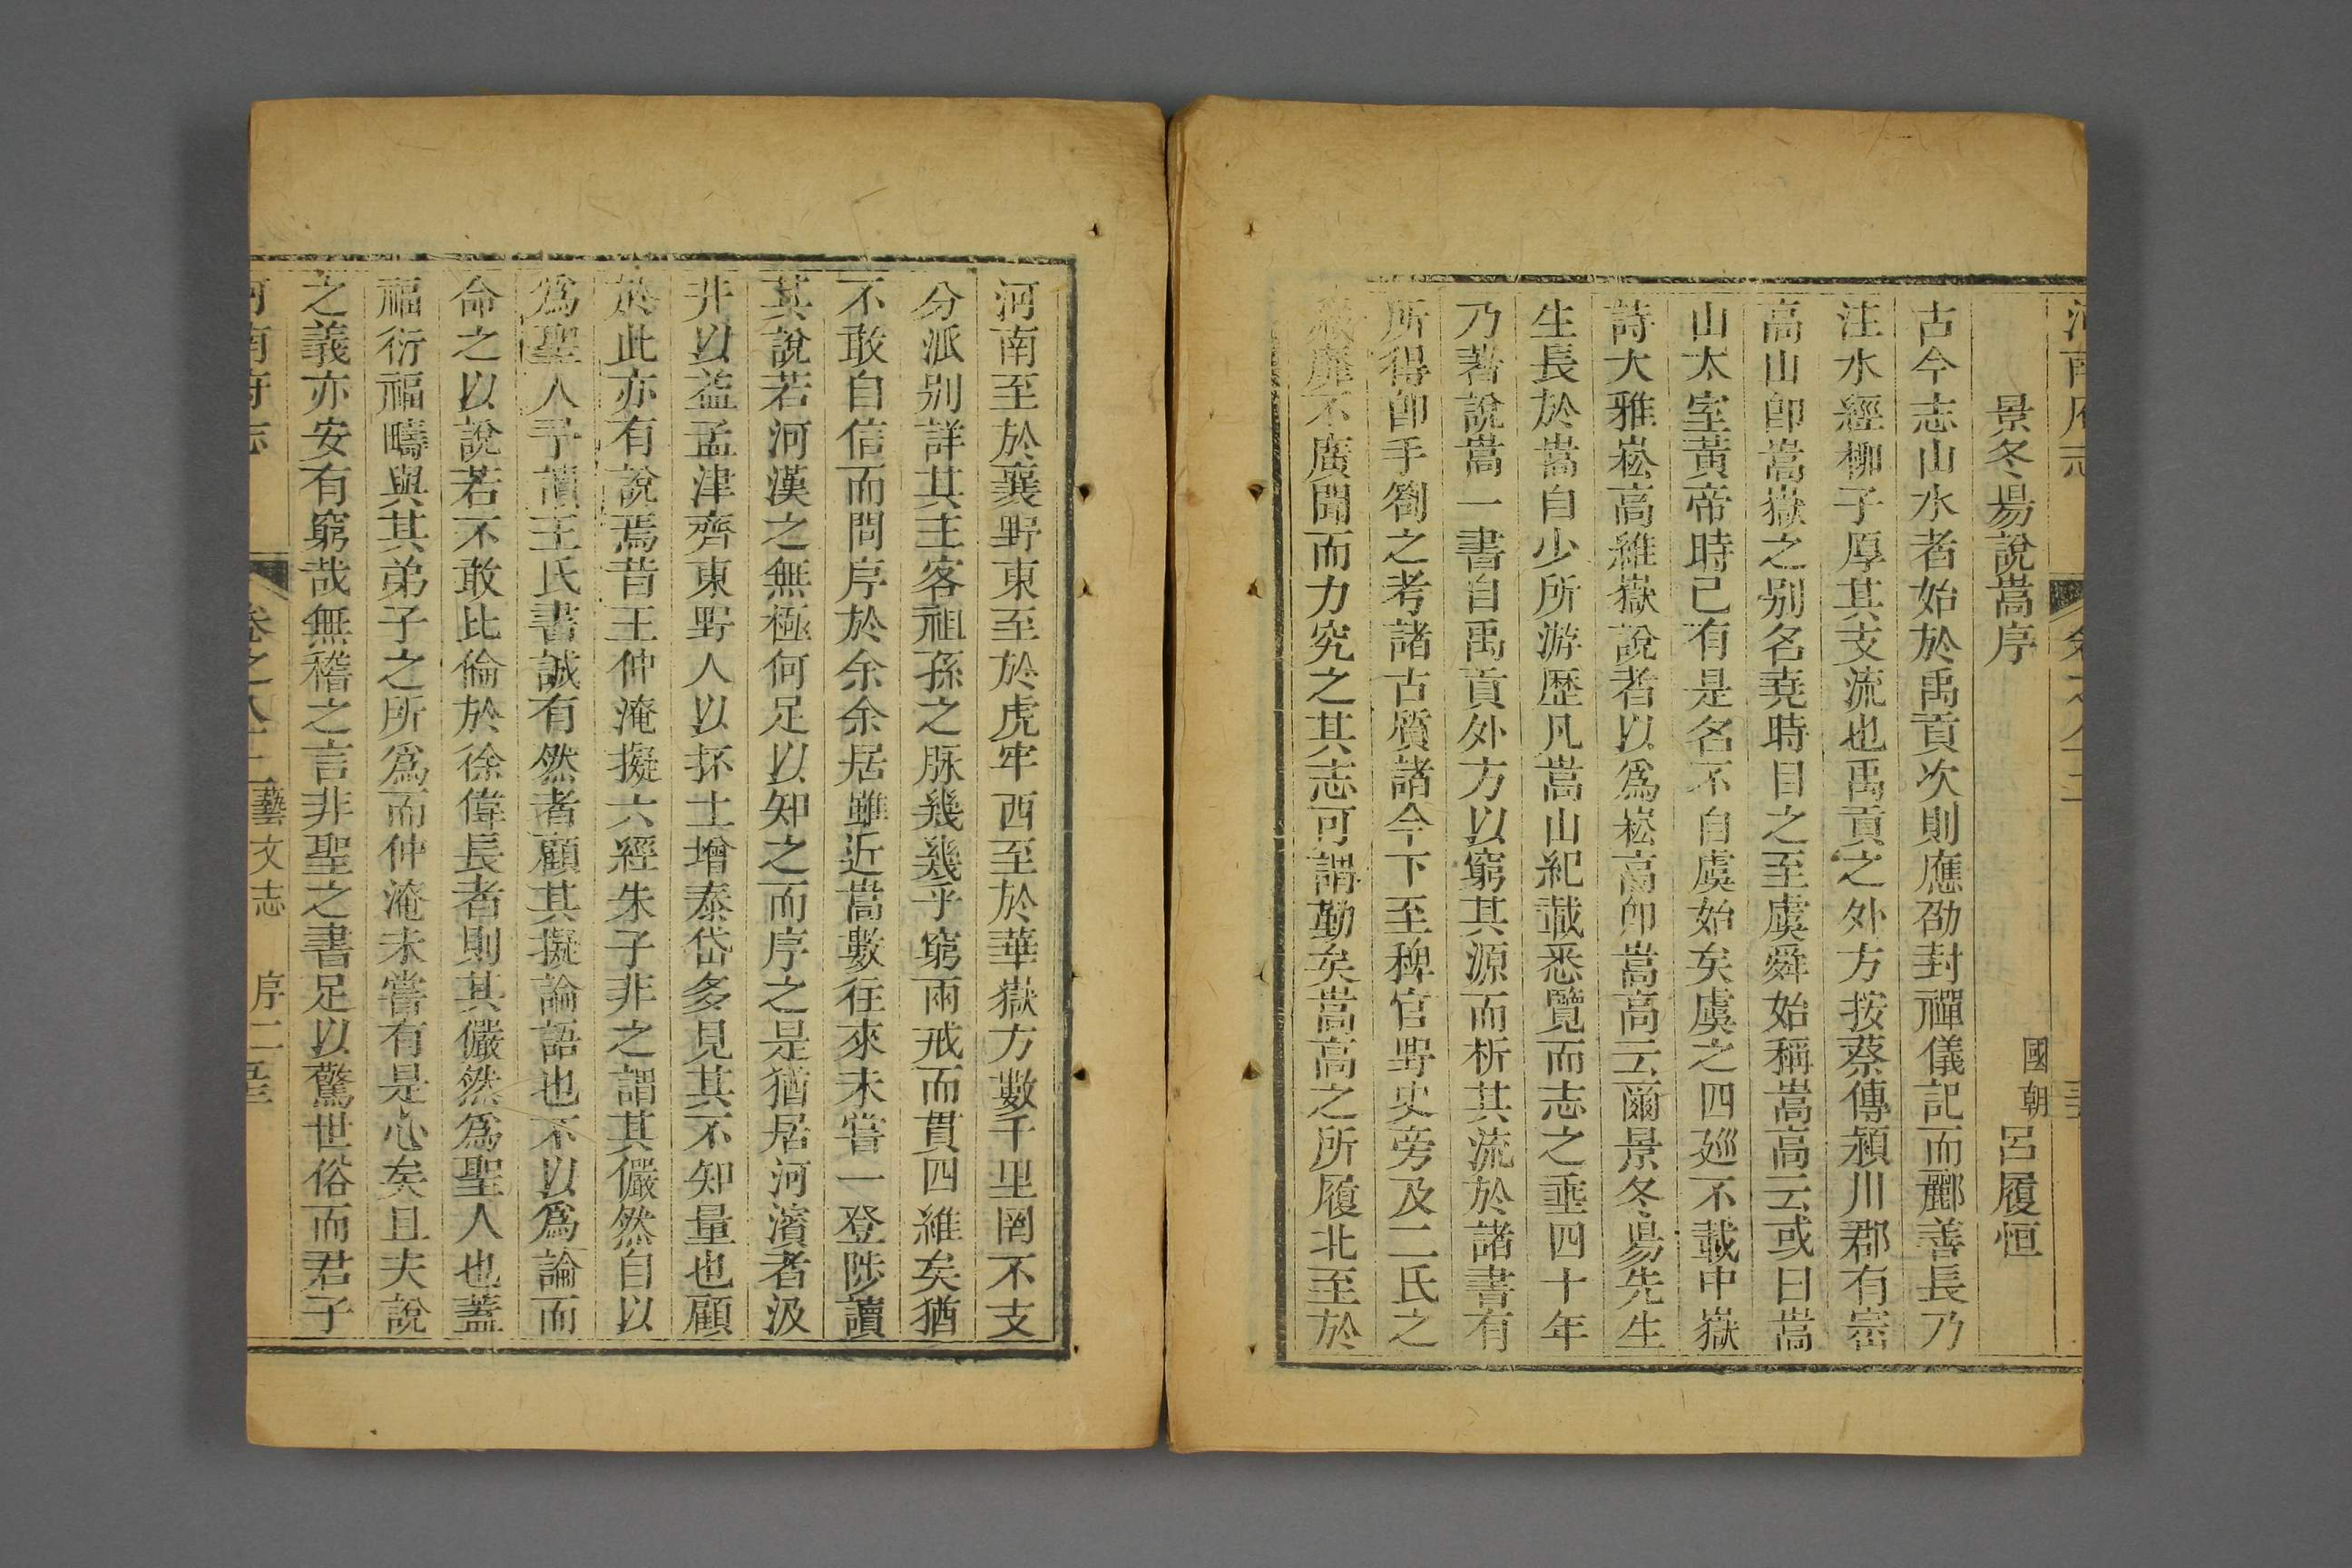 河南府志 卷之八十二
景冬昜說嵩序 國朝 呂履恒
古今志山水者始於禹貢次則應劭封禪儀記而酈善長乃
注水經柳子厚其支流也禹貢之外方按蔡傳潁川郡有崈
高山卽嵩嶽之别名堯時目之至虞舜始稱嵩高云或曰嵩
山太室黃帝時已有是名不自虞始矣虞之四廵不載中嶽
詩大雅崧高維嶽說者以爲崧高卽嵩高云爾景冬昜先生
生長於嵩自少所游歷凡嵩山紀載悉覽而志之垂四十年
乃著說嵩一書自禹貢外方以窮其源而析其流於諸書有
所得卽手劄之考諸古質諸今下至稗官野史旁及二氏之
靡不廣聞而力究之其志可謂勤矣嵩高之所履北至於
河南至於襄野東至於虎牢西至於華嶽方數千里罔不支
分派别詳其主客祖孫之脉幾幾乎窮兩戒而貫四維矣猶
不敢自信而問序於余余居雖近嵩數往來未嘗一登陟讀
其說若河漢之無極何足以知之而序之是猶居河濱者汲
井以益孟津齊東野人以抔土增泰岱多見其不知量也顧
於此亦有說焉昔王仲淹擬六經朱子非之謂其儼然自以
爲聖人予讀王氏書誠有然者顧其擬論語也不以爲論而
命之以說若不敢比倫於徐偉長者則其儼然爲聖人也蓋
福衍福疇與其弟子之所爲而仲淹未嘗有是心矣且夫說
之義亦安有窮哉無稽之言非聖之書足以驚世俗而君子
河南府志 卷之八十二 藝文志 序二